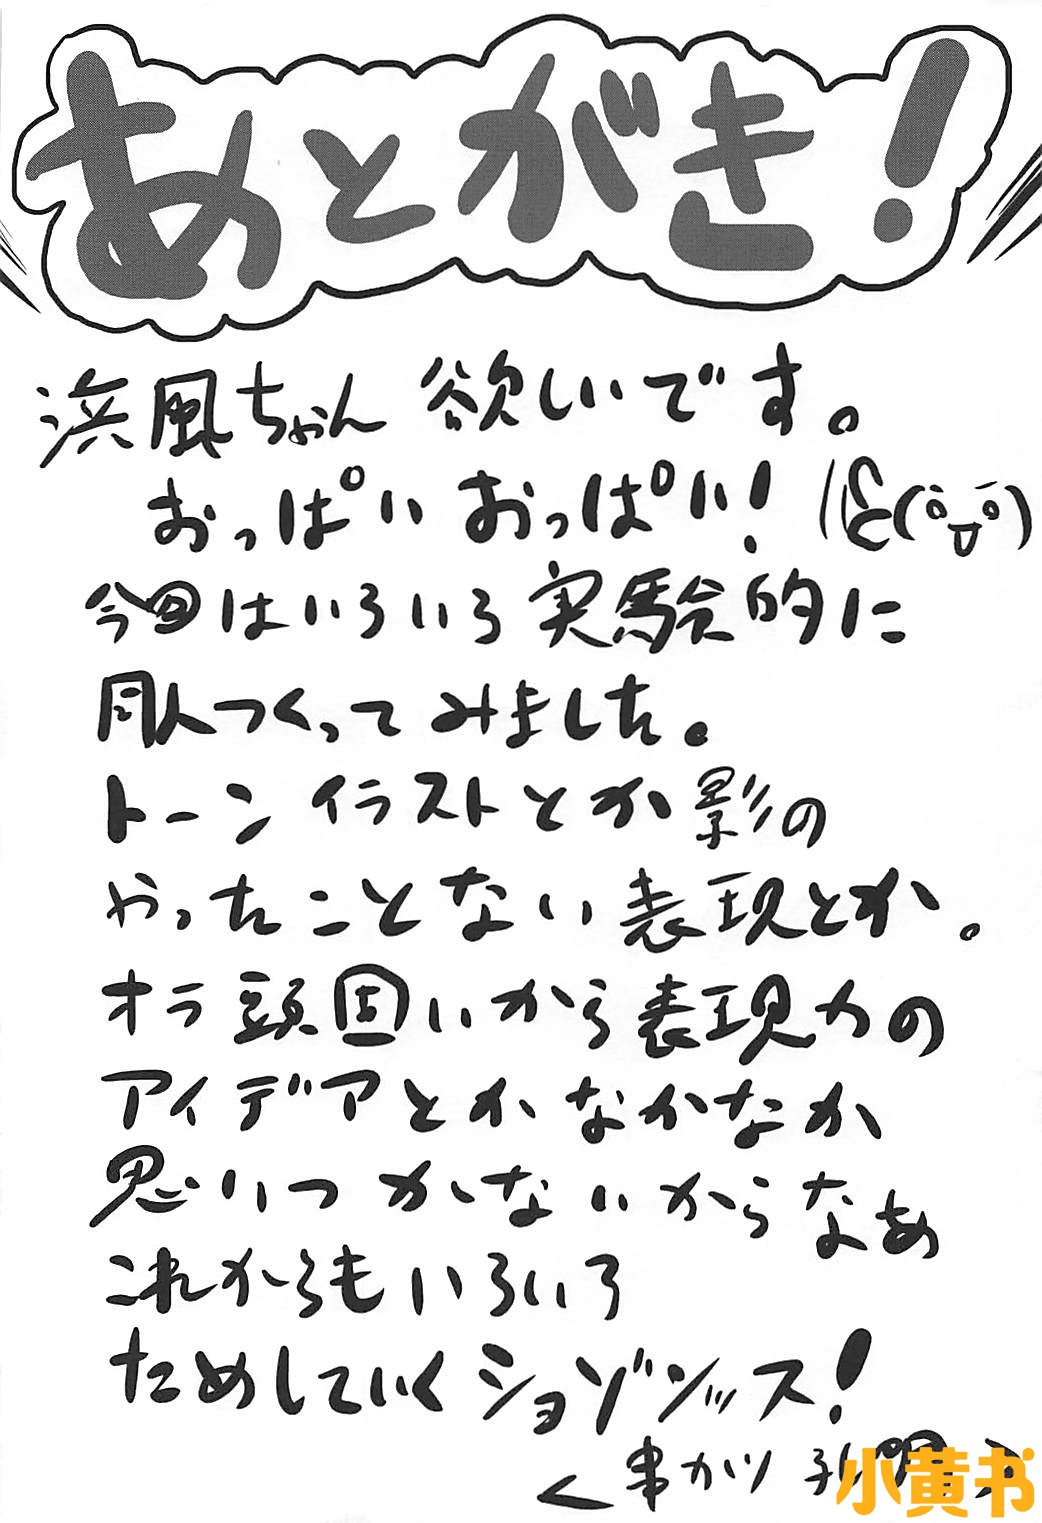 あとがき！
浜風ちゃん 欲しいです。
おっぱい おっぱい！
今回はいろいろ実験的に
同人つくってみました。
トーンイラストとか影の
やったことない表現とか。
オラ頭固いから表現力の
アイデアとかなかなか
思いつかないからなあ
これからもいろいろ
ためしていくショゾンッス！
串かツ
小黄书